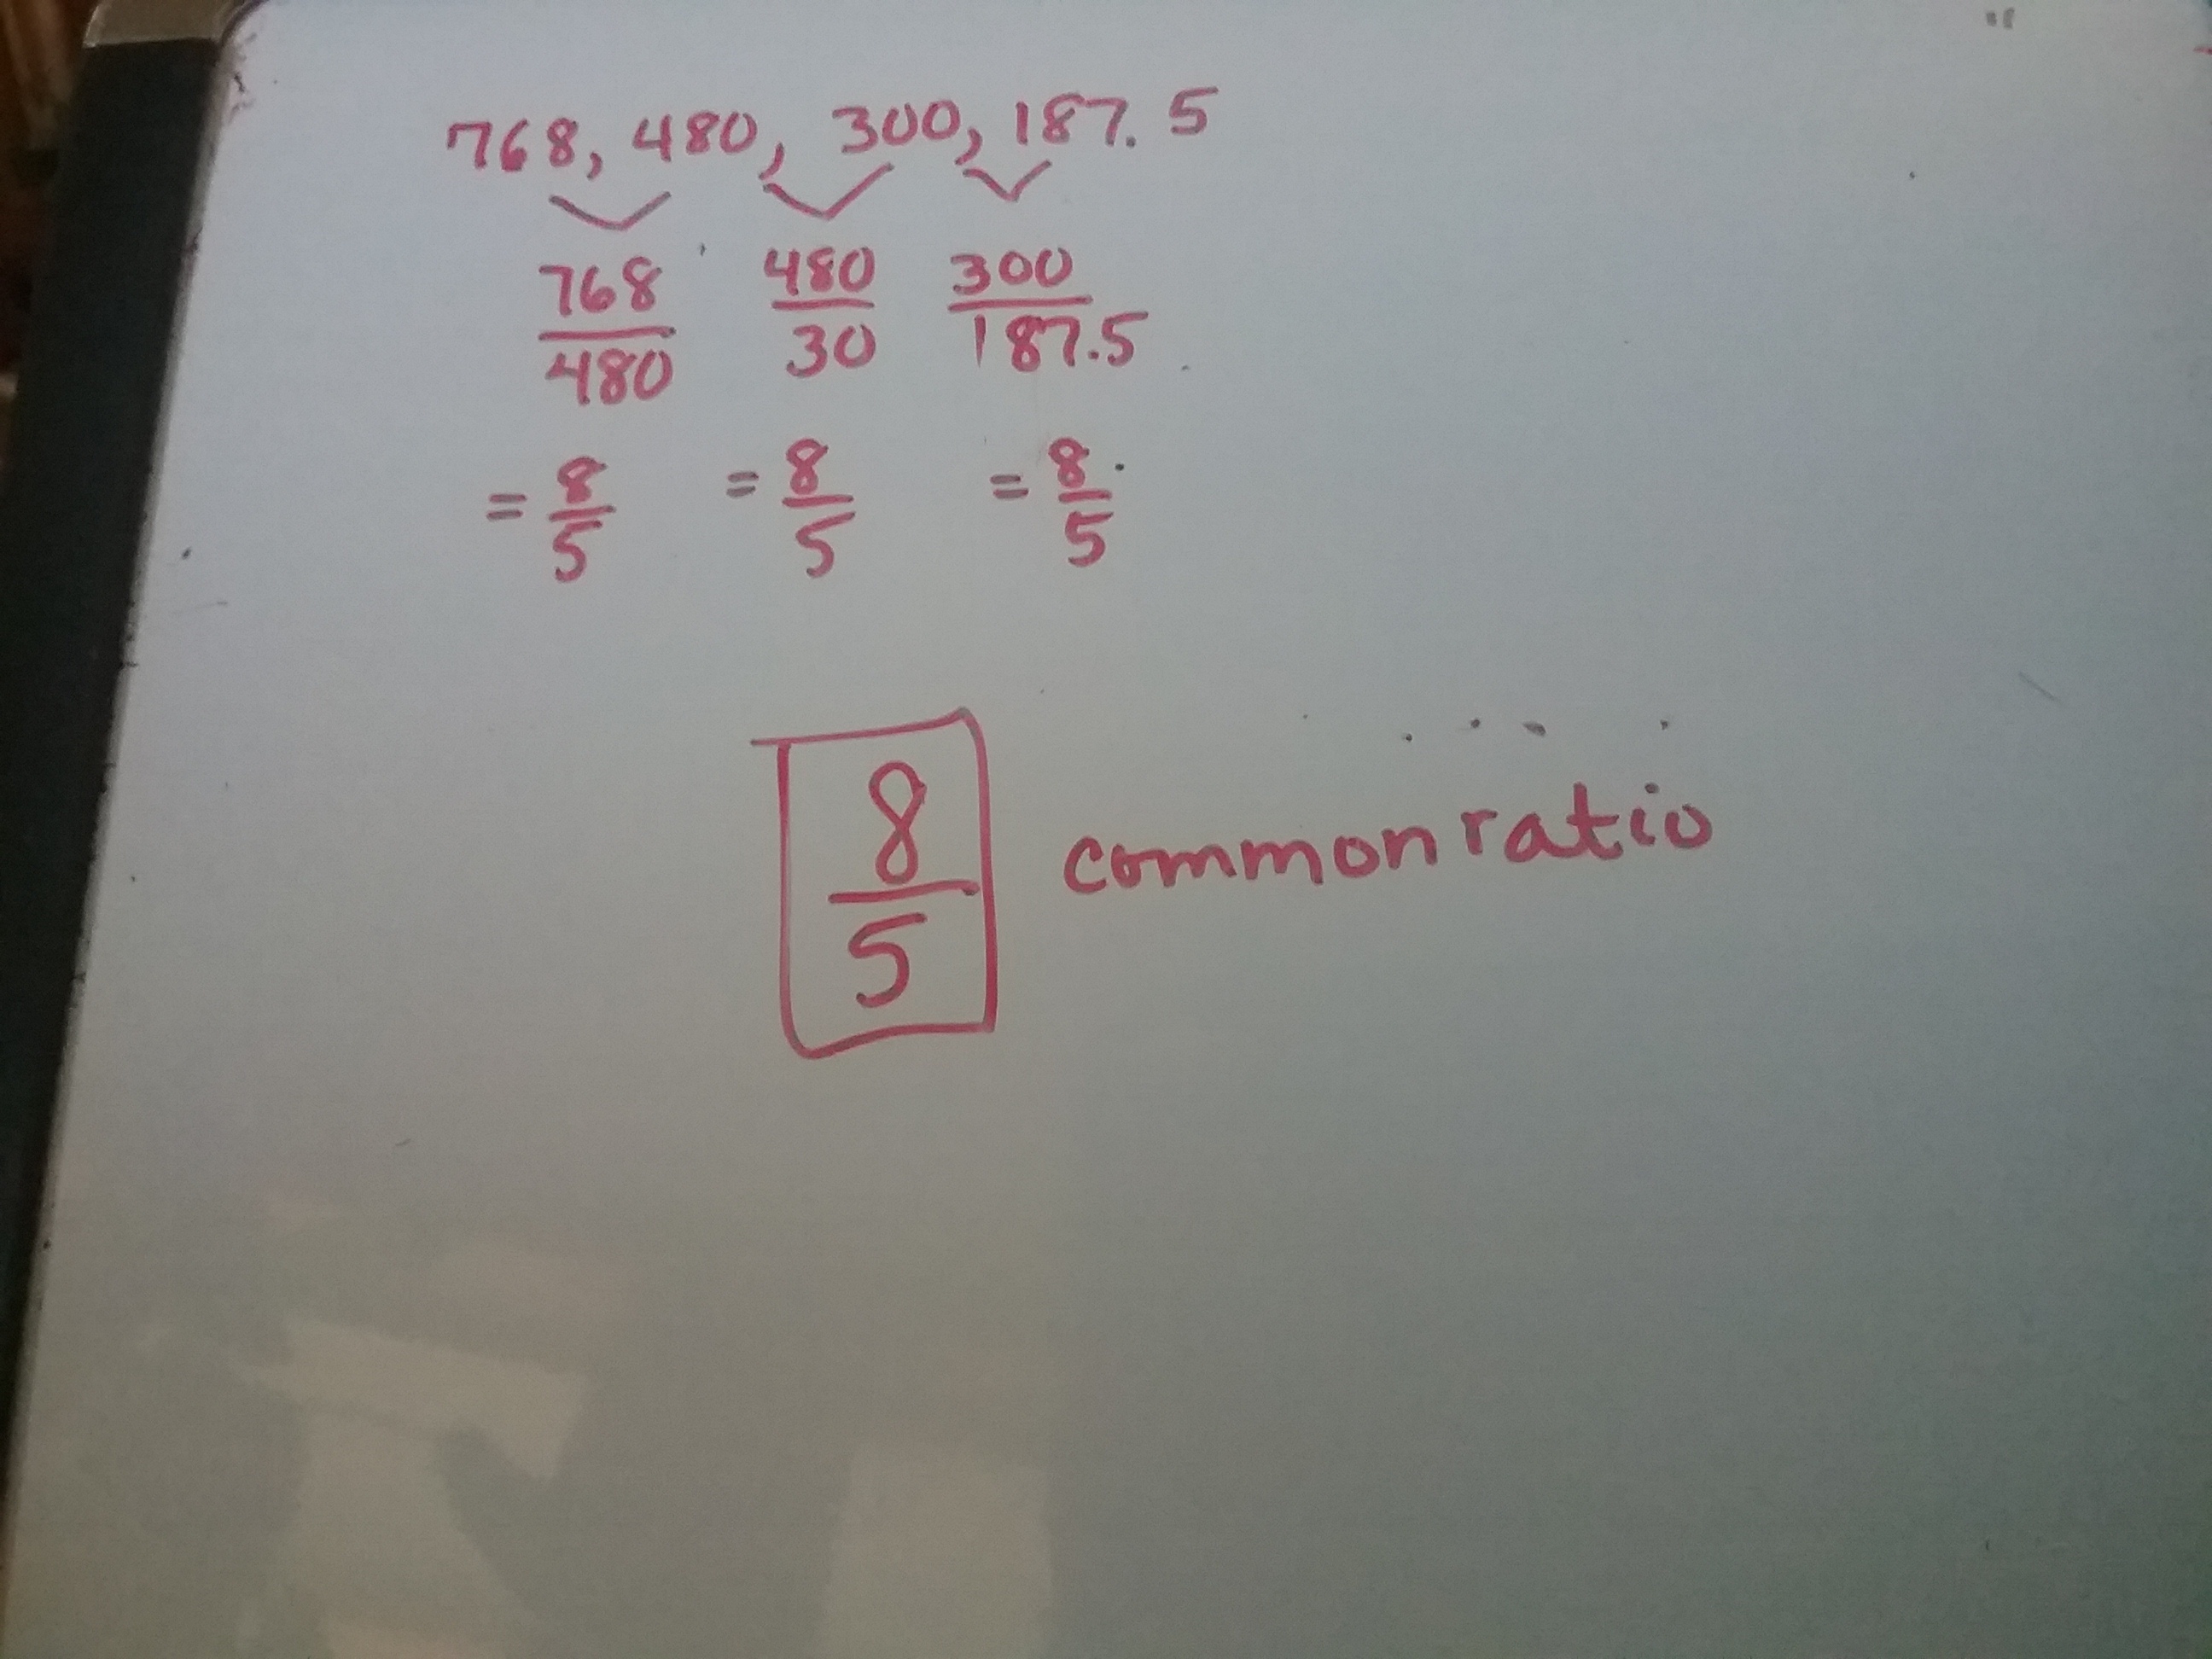 768, 480, 300, 187.5
768/480 480/30 300/187.5
= 8/5 = 8/5 = 8/5
8/5 common ratio